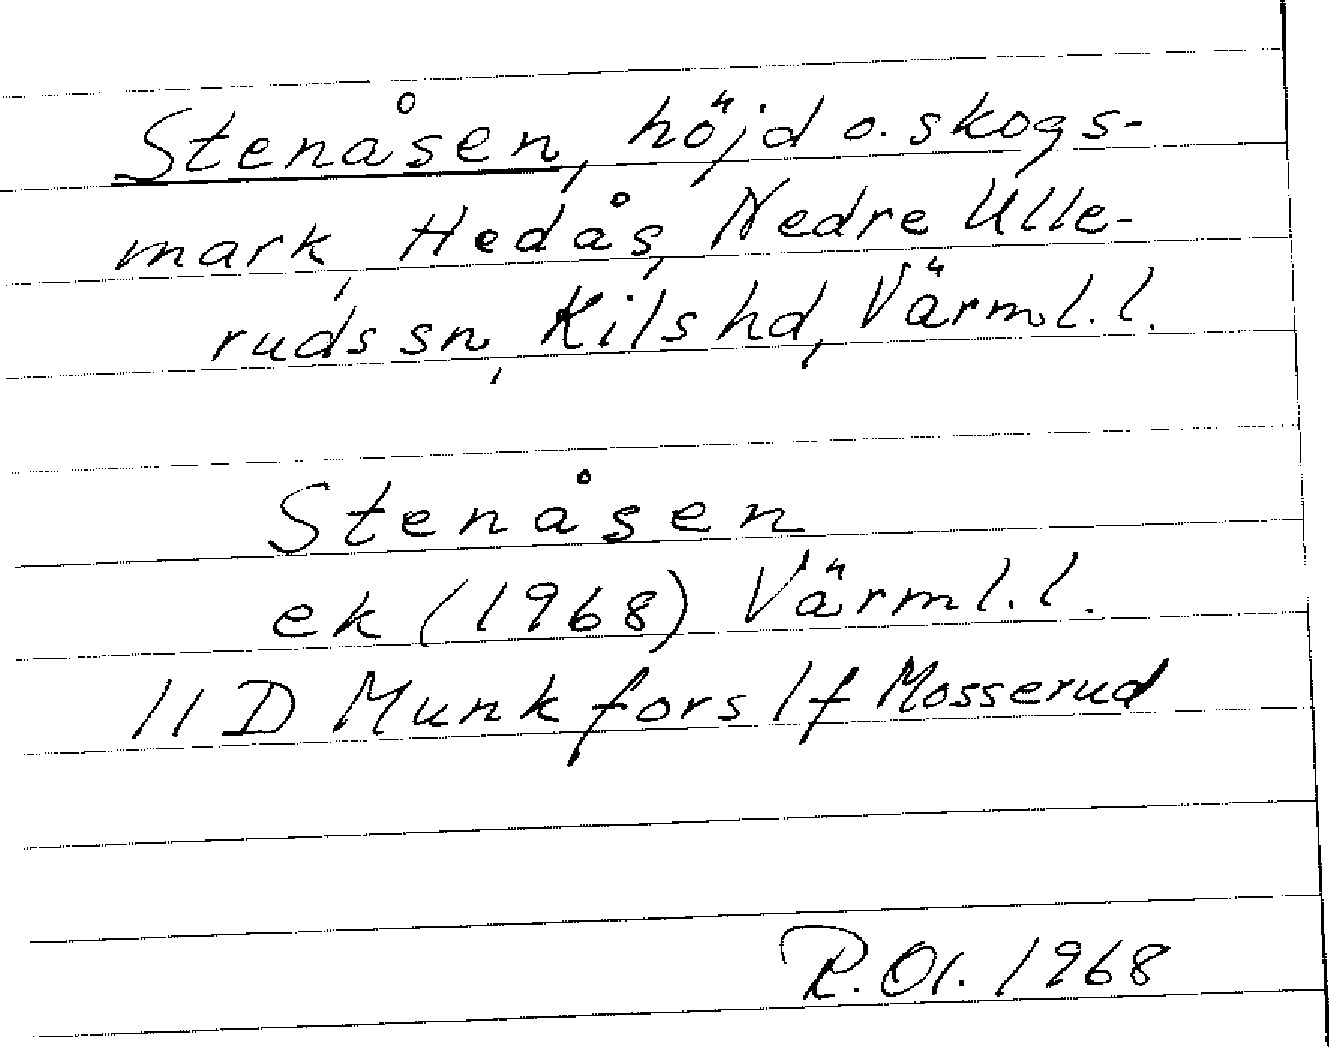 Stenåsen, höjd o. skogs-
mark, Hedås, Nedre Ulle-
ruds sn, Kils hd, Värml. l.
Stenåsen
ek (1968) Värml. l.
11 D Munkfors 1f Mosserud
R. Ol. 1968